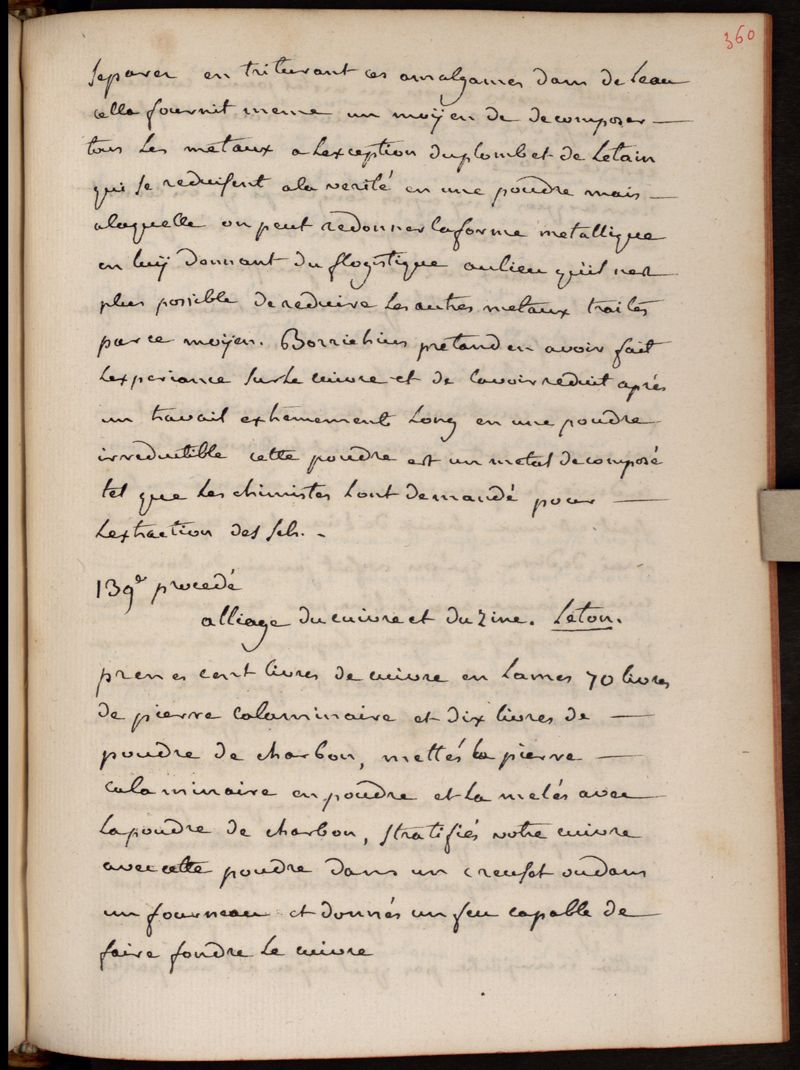 360
separer en triturant ces amalgames dans de leau
cella fournit meme un moÿen de decomposer —
tous les metaux a lexception du plomb et de letain
qui se reduisent ala verité en une poudre mais —
alaquelle on peut redonner laforme metallique
en luÿ donnant du flogistique aulieu quil nest
plus possible de reduire les autres metaux traités
par ce moÿen. Borrichius pretend en avoir fait
lexperiance sur le cuivre et de lavoir reduit aprés
un travail extremement long en une poudre
irreductible cette poudre est un metal decomposé
tel que les chimistes lont demandé pour —
lextraction des sels. -
139e procedé
alliage du cuivre et du zinc. Leton.
prenes cent livres de cuivre en lames 70 livres
de pierre calaminaire et dix livres de —
poudre de charbon, mettés la pierre —
calaminaire en poudre et la melés avec
lapoudre de charbon, stratifiés votre cuivre
avec cette poudre dans un creuset oudans
un fourneau et donnés un feu capable de
faire fondre le cuivre